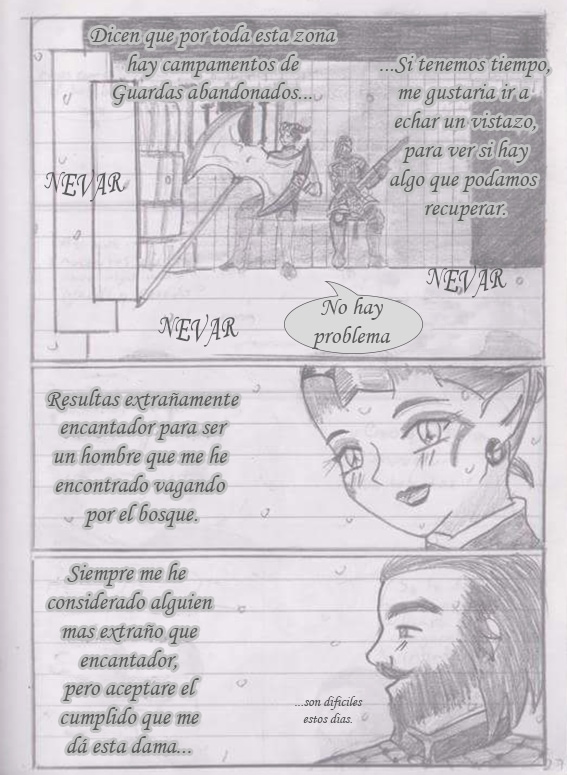 Dicen que por toda esta zona
hay campamentos de
Guardas abandonados...
...Si tenemos tiempo,
me gustaria ir a
echar un vistazo,
para ver si hay
algo que podamos
recuperar.
NEVAR
NEVAR
NEVAR
No hay
problema
Resultas extrañamente
encantador para ser
un hombre que me he
encontrado vagando
por el bosque.
Siempre me he
considerado alguien
mas extraño que
encantador,
pero aceptare el
cumplido que me
dá esta dama...
...son dificiles
estos dias.